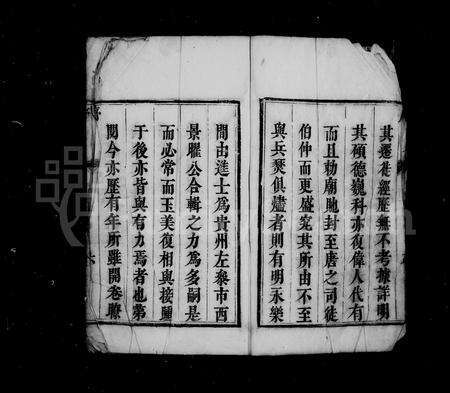 其遷徙經歷無不考據詳明
其碩德巍科亦復偉人代有
而且勅廟馳封至唐之司徒
伯仲而更盛究其所由不至
與兵燹俱燼者則有明永樂
間由進士為貴州左叅市酉
景曜公合輯之力為多嗣是
而必常而玉美復相與接踵
于後亦皆與有力焉者也第
閱今亦歷有年所雖開卷瞭